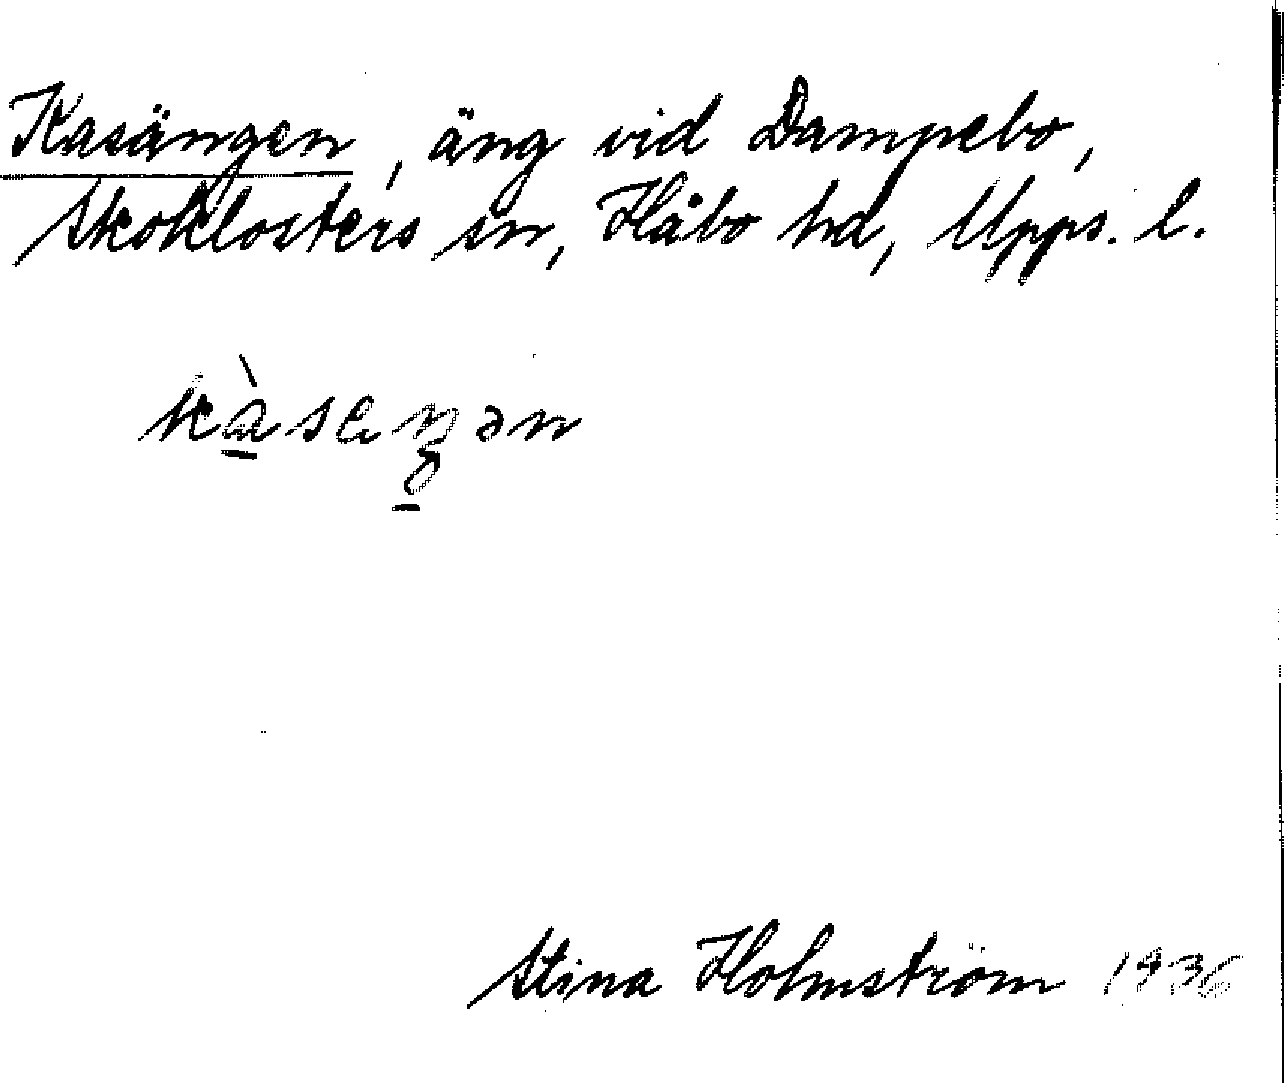 Kasängen, äng vid Dampebo,
Skoklosters sn, Håbo hd, Upps. l.
Stina Holmström 1936